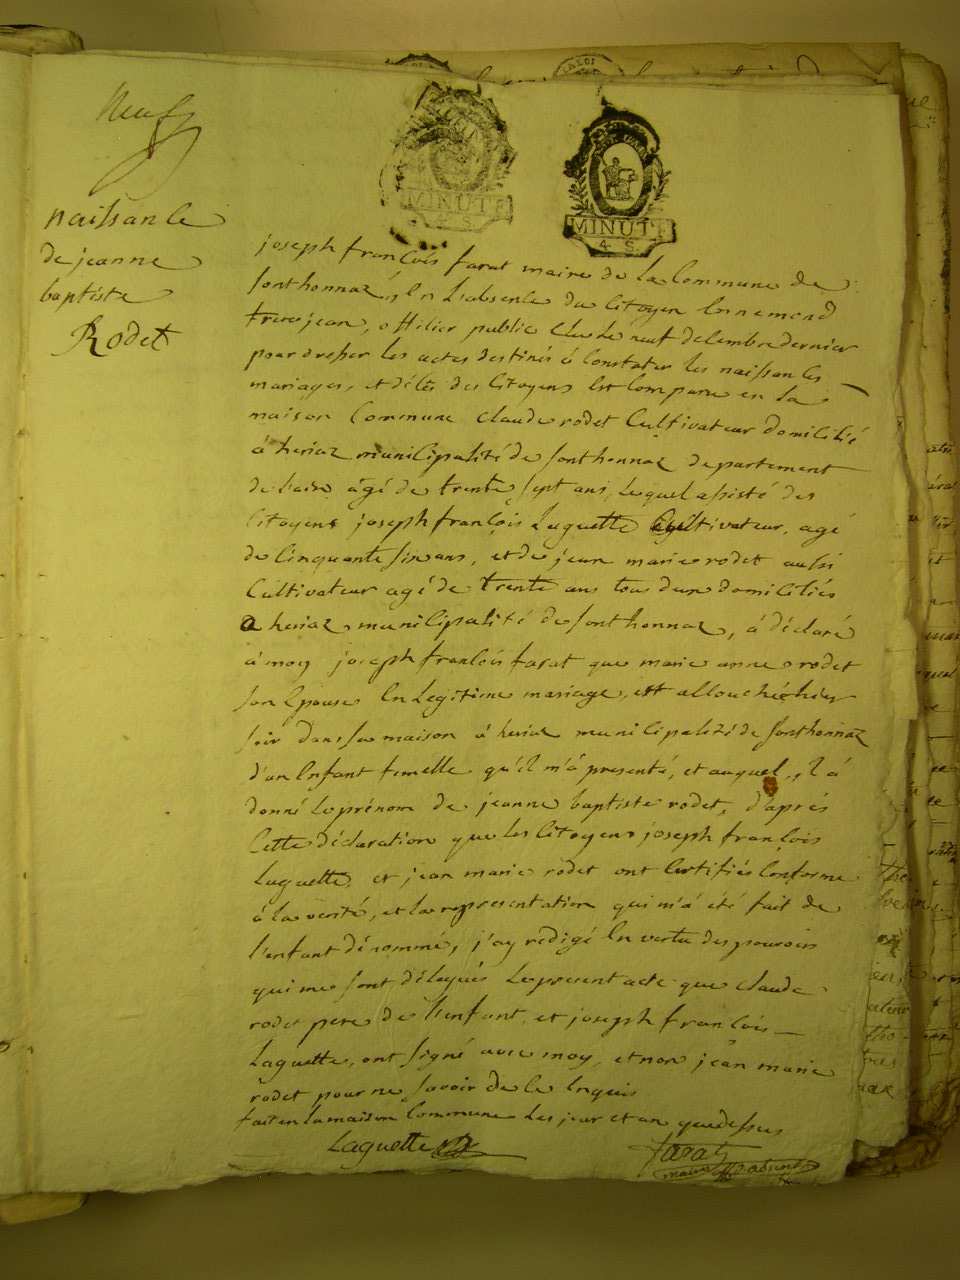 Neuf
naissance
de jeanne
baptiste
Rodet
MINUTE
4 S.
MINUTE
4 S.
joseph françois farat maire de la Commune de
fonthonnaz, En L'absence du Citoyen
trevejean, officier public Elu Le neuf decembre dernier
pour dresser les actes destinés à Constater les naissances
mariages, et décès des Citoyens Est Comparu en la
maison Commune Claude rodet Cultivateur domicilié
à heriaz municipalité de fonthonnaz departement
de âgé de trente sept ans, Lequel assisté des
Citoyens joseph françois Laguette Cultivateur, agé
de Cinquante six ans, et de jean marie rodet aussi
Cultivateur agé de trente ans tous deux domiciliés
a heriaz municipalité de fonthonnaz, à déclaré
à moy joseph françois farat que marie anne rodet
son Epouse En Legitime mariage, est allouchée hier
soir dans sa maison à heriaz municipalité de fonthonnaz
d'un Enfant femelle qu'il m'à presenté, et auquel, il à
donné Le prénom de jeanne baptiste rodet, d'après
Cette déclaration que les Citoyens joseph françois
Laguette, et jean marie rodet ont Certifiés Conforme
à la verité, et la representation qui m'a été fait de
l'enfant dénommé, j'ay redigé En vertu des pouvoirs
qui me sont délegués Le present acte que claude
rodet pere de l'enfant, et joseph françois
Laguette, ont signé avec moy, et non jean marie
rodet pour ne savoir de Ce Enquis
fait en la maison Commune Les jour et an que dessus
Laguette farat
maire